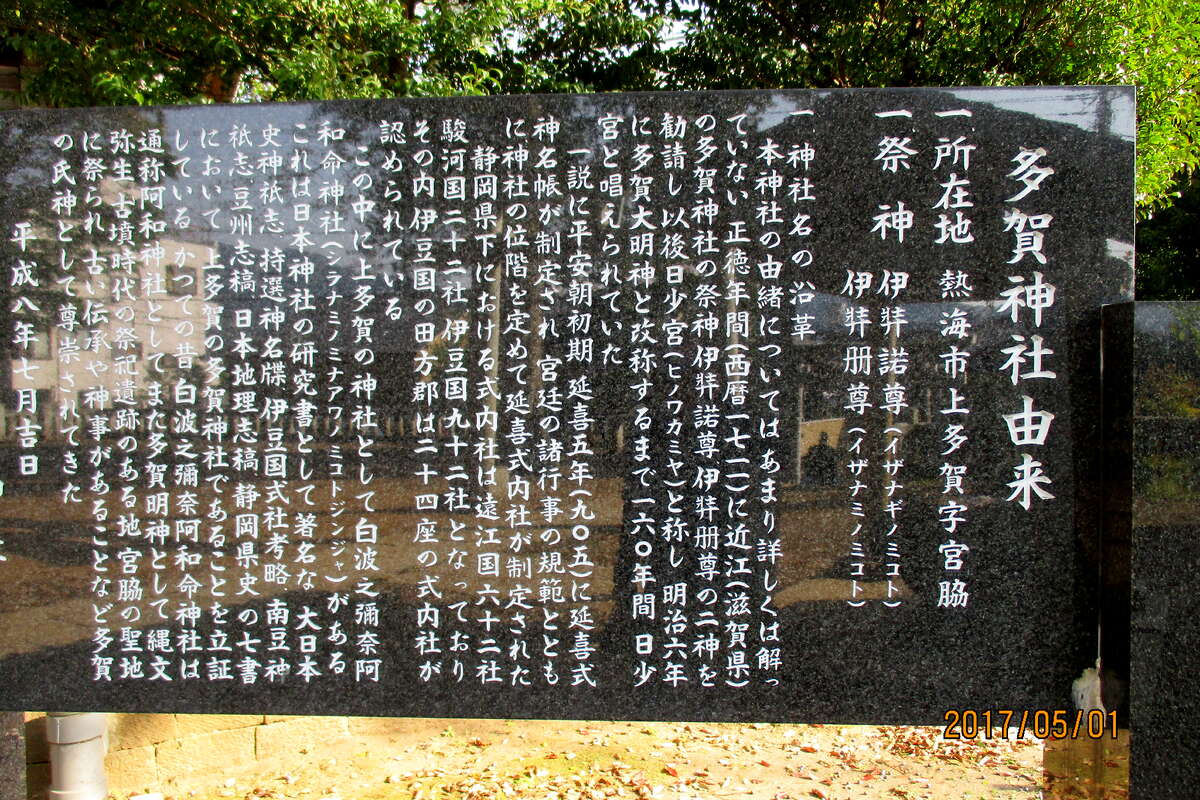 多賀神社由来
一 所在地 熱海市上多賀字宮脇
一 祭神 伊弉諾尊(イザナギノミコト)
伊弉册尊(イザナミノミコト)
一 神社名の沿革
本神社の由緒についてはあまり詳しくは解っ
ていない 正徳年間(西暦一七一一)に近江(滋賀県)
の多賀神社の祭神伊弉諾尊伊弉册尊の二神を
勧請し以後日少宮(ヒノワカミヤ)と称し 明治六年
に多賀大明神と改称するまで一六〇年間 日少
宮と唱えられていた
一説に平安朝初期 延喜五年(九〇五)に延喜式
神名帳が制定され 宮廷の諸行事の規範ととも
に神社の位階を定めて延喜式内社が制定された
静岡県下における式内社は遠江国六十二社
駿河国二十二社 伊豆国九十二社となっており
その内伊豆国の田方郡は二十四座の式内社が
認められている
この中に上多賀の神社として白波之彌奈阿
和命神社(シラナミノミナアワノミコトジンジャ)がある
これは日本神社の研究書として著名な 大日本
史神祇志 特選神名牒 伊豆国式社考略 南豆神
祇志 豆州志稿 日本地理志稿 静岡県史の七書
において 上多賀の多賀神社であることを立証
している かつての昔白波之彌奈阿和命神社は
通称阿和神社としてまた多賀明神として縄文
弥生 古墳時代の祭祀遺跡のある地 宮脇の聖地
に祭られ古い伝承や神事があることなど多賀
の氏神として尊崇されてきた
平成八年七月吉日
2017/05/01